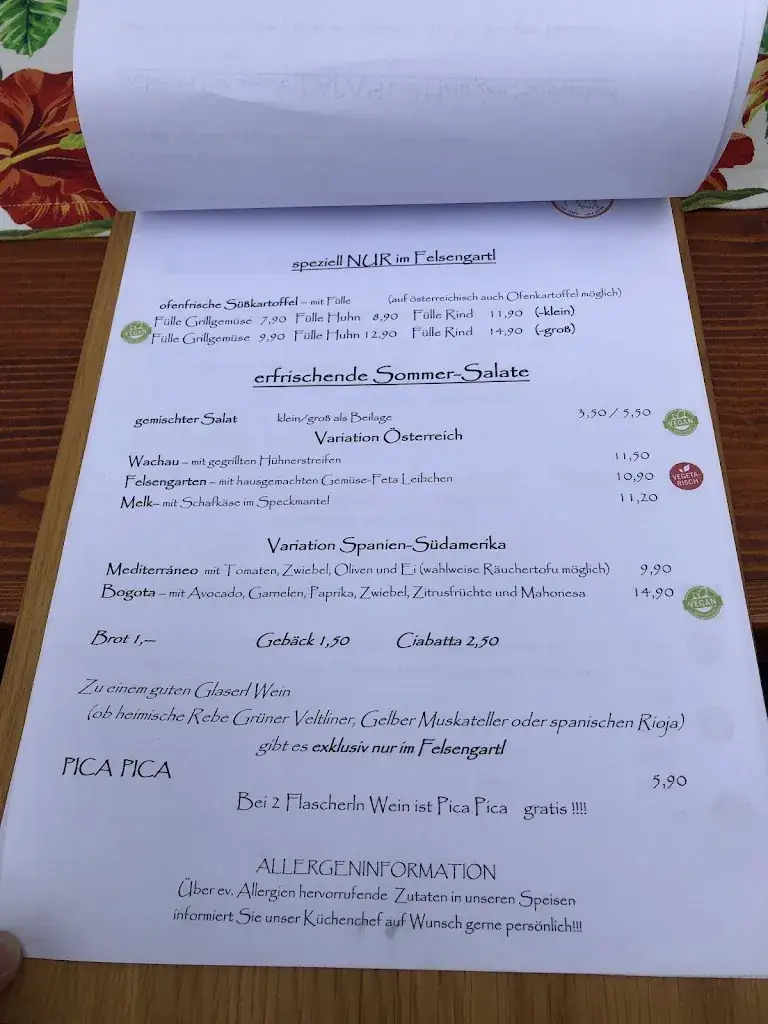 speziell NUR im Felsengartl
ofenfrische Süßkartoffel – mit Fülle (auf österreichisch auch Ofenkartoffel möglich)
Fülle Grillgemüse 7,90 Fülle Huhn 8,90 Fülle Rind 11,90 (-klein)
VEGAN Fülle Grillgemüse 9,90 Fülle Huhn 12,90 Fülle Rind 14,90 (-groß)
erfrischende Sommer-Salate
gemischter Salat klein/groß als Beilage 3,50 / 5,50 VEGAN
Variation Österreich
Wachau – mit gegrillten Hühnerstreifen 11,50
Felsengarten – mit hausgemachten Gemüse-Feta Leibchen 10,90 VEGETA-
RISCH
Melk– mit Schafkäse im Speckmantel 11,20
Variation Spanien-Südamerika
Mediterráneo mit Tomaten, Zwiebel, Oliven und Ei (wahlweise Räuchertofu möglich) 9,90
Bogota – mit Avocado, Garnelen, Paprika, Zwiebel, Zitrusfrüchte und Mahonesa 14,90 VEGAN
Brot 1,— Gebäck 1,50 Ciabatta 2,50
Zu einem guten Glaserl Wein
(ob heimische Rebe Grüner Veltliner, Gelber Muskateller oder spanischen Rioja)
gibt es exklusiv nur im Felsengartl
PICA PICA 5,90
Bei 2 Flascherln Wein ist Pica Pica gratis !!!!
ALLERGENINFORMATION
Über ev. Allergien hervorrufende Zutaten in unseren Speisen
informiert Sie unser Küchenchef auf Wunsch gerne persönlich!!!